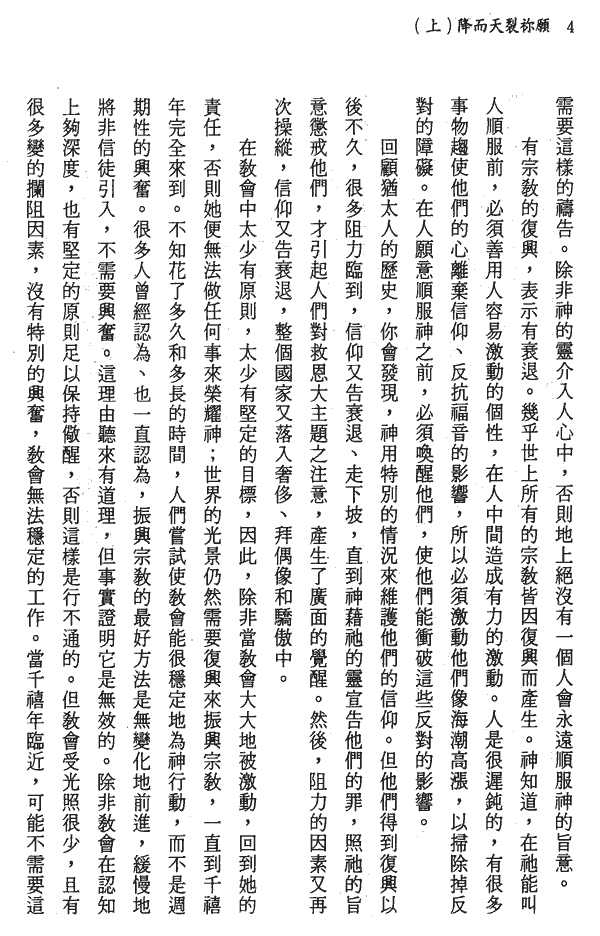 4 願祢裂天而降（上）
需要這樣的禱告。除非神的靈介入人心中，否則地上絕沒有一個人會永遠順服神的旨意。
有宗教的復興，表示有衰退。幾乎世上所有的宗教皆因復興而產生。神知道，在祂能叫
人順服前，必須善用人容易激動的個性，在人中間造成有力的激動。人是很遲鈍的，有很多
事物趨使他們的心離棄信仰、反抗福音的影響，所以必須激動他們像海潮高漲，以掃除掉反
對的障礙。在人願意順服神之前，必須喚醒他們，使他們能衝破這些反對的影響。
回顧猶太人的歷史，你會發現，神用特別的情況來維護他們的信仰。但他們得到復興以
後不久，很多阻力臨到，信仰又告衰退、走下坡，直到神藉祂的靈宣告他們的罪，照祂的旨
意懲戒他們，才引起人們對救恩大主題之注意，產生了廣面的覺醒。然後，阻力的因素又再
次操縱，信仰又告衰退，整個國家又落入奢侈、拜偶像和驕傲中。
在教會中太少有原則，太少有堅定的目標，因此，除非當教會大大地被激動，回到她的
責任，否則她便無法做任何事來榮耀神；世界的光景仍然需要復興來振興宗教，一直到千禧
年完全來到。不知花了多久和多長的時間，人們嘗試使教會能很穩定地為神行動，而不是週
期性的興奮。很多人曾經認為、也一直認為，振興宗教的最好方法是無變化地前進，緩慢地
將非信徒引入，不需要興奮。這理由聽來有道理，但事實證明它是無效的。除非教會在認知
上夠深度，也有堅定的原則足以保持儆醒，否則這樣是行不通的。但教會受光照很少，且有
很多變的攔阻因素，沒有特別的興奮，教會無法穩定的工作。當千禧年臨近，可能不需要這